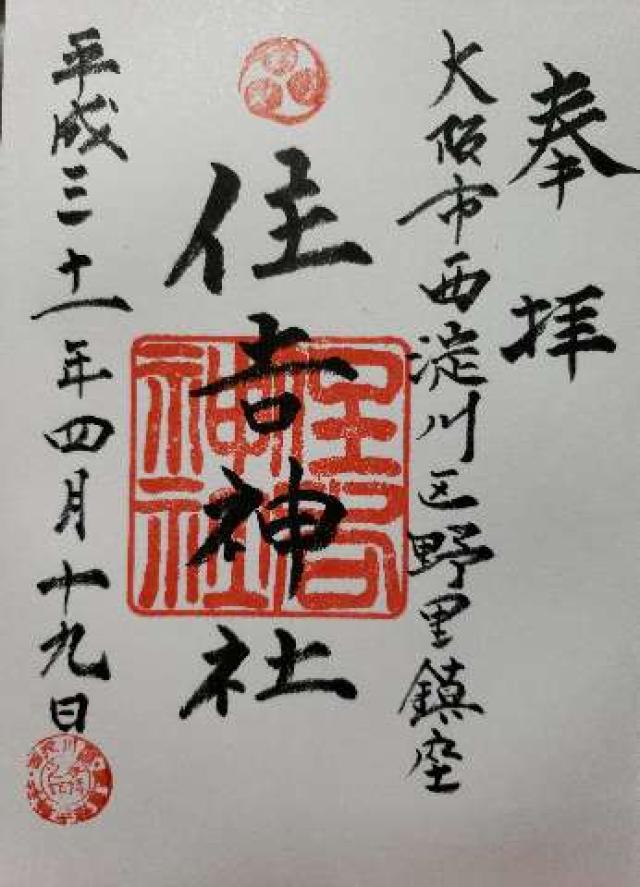 奉拝
大阪市西淀川区野里鎮座
住吉神社
住吉神社
平成三十一年四月十九日